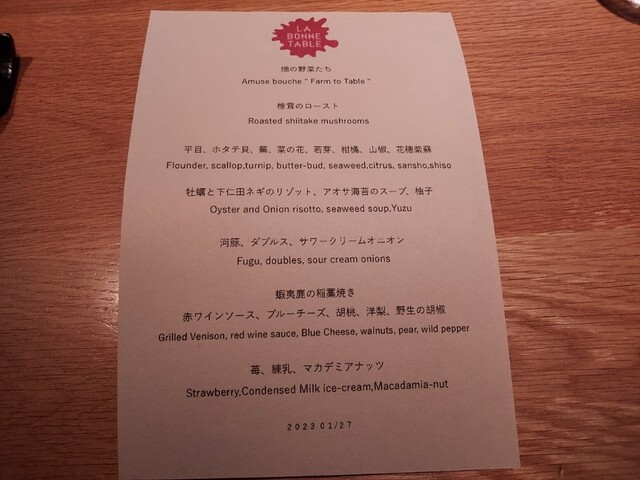 LA
BONNE
TABLE
畑の野菜たち
Amuse bouche " Farm to Table "
椎茸のロースト
Roasted shiitake mushrooms
平目、ホタテ貝、蕪、菜の花、若芽、柑橘、山椒、花穂紫蘇
Flounder, scallop,turnip, butter-bud, seaweed,citrus, sansho,shiso
牡蠣と下仁田ネギのリゾット、アオサ海苔のスープ、柚子
Oyster and Onion risotto, seaweed soup,Yuzu
河豚、ダブルス、サワークリームオニオン
Fugu, doubles, sour cream onions
蝦夷鹿の稲藁焼き
赤ワインソース、ブルーチーズ、胡桃、洋梨、野生の胡椒
Grilled Venison, red wine sauce, Blue Cheese, walnuts, pear, wild pepper
苺、練乳、マカデミアナッツ
Strawberry,Condensed Milk ice-cream,Macadamia-nut
2023 01/27